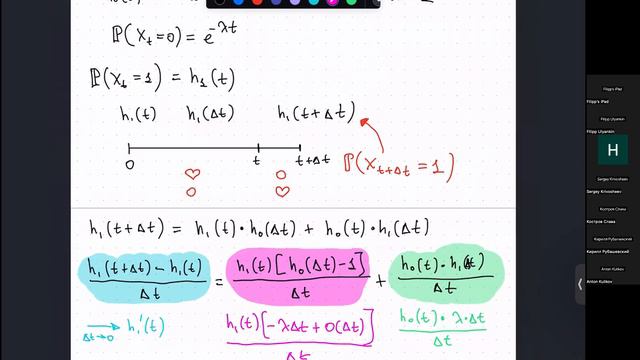 ℙ(X_t=0) = e^{-λt}
ℙ(X_t=1) = h_1(t)
h_1(t) h_1(Δt) h_1(t+Δt)
0 t t+Δt ℙ(X_{t+Δt}=1)
♡ 0
0 ♡
h_1(t+Δt) = h_1(t)·h_0(Δt) + h_0(t)·h_1(Δt)
\frac{h_1(t+Δt) - h_1(t)}{Δt} = \frac{h_1(t)[h_0(Δt)-1]}{Δt} + \frac{h_0(t)·h_1(Δt)}{Δt}
\xrightarrow[Δt→0]{} h_1'(t) \frac{h_1(t)[-λΔt+o(Δt)]}{Δt} \frac{h_0(t)·λ·Δt}{Δt}
Filipp's iPad
Filipp's iPad
Filipp Ulyankin
Filipp Ulyankin
H
Sergey Krivosheev
Sergey Krivosheev
Костров Слава
Костров Слава
Кирилл Рубашевский
Кирилл Рубашевский
Anton Kulikov
Anton Kulikov